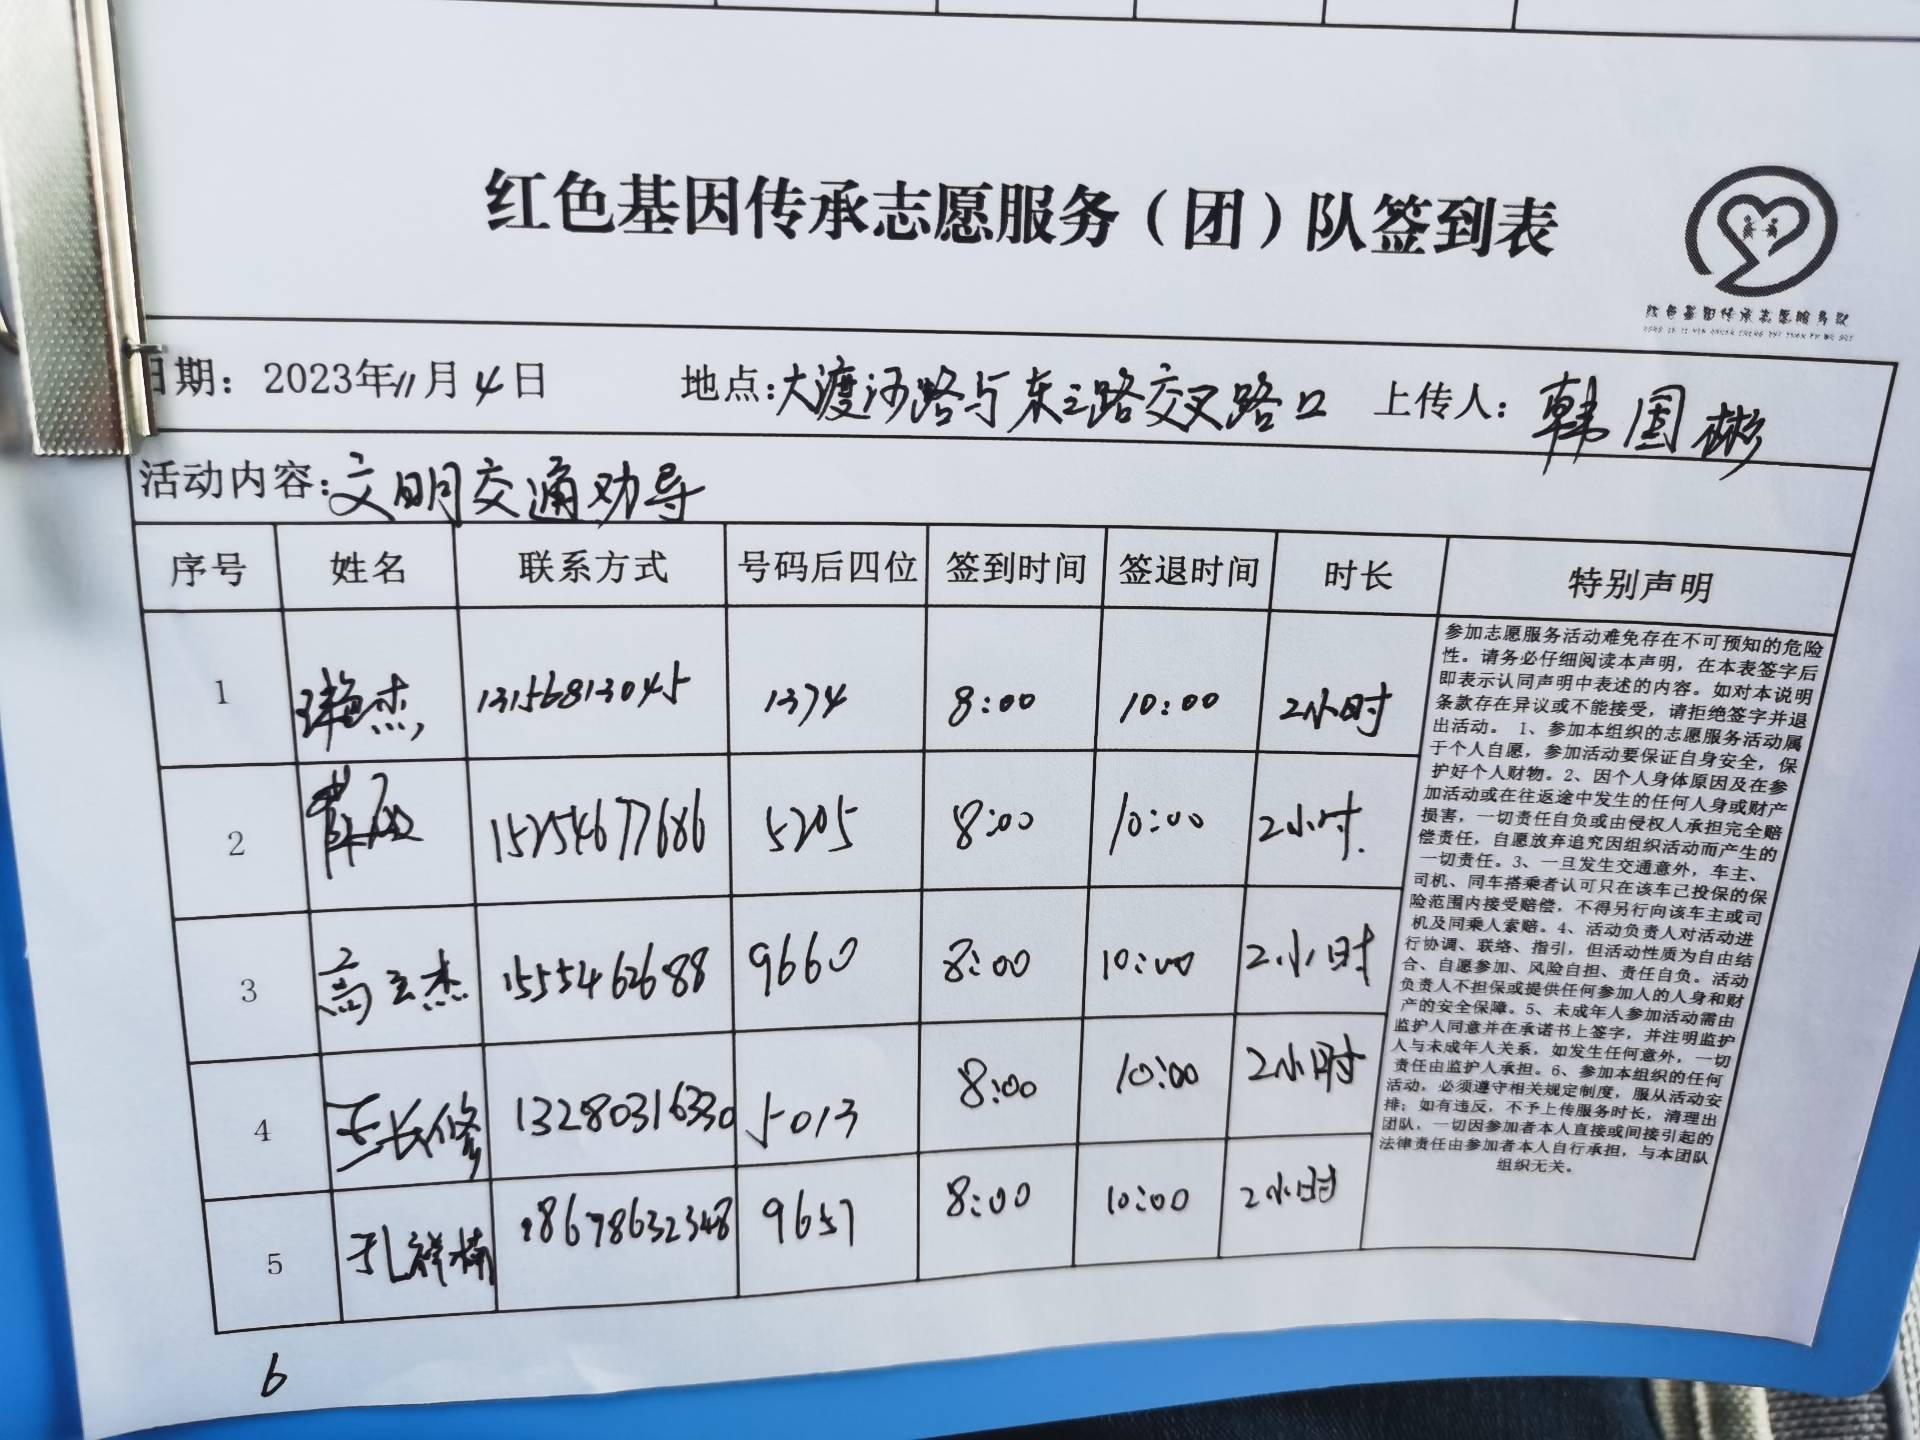 红色基因传承志愿服务（团）队签到表
红色基因传承志愿服务队
日期：2023年11月4日 地点：大渡河路与东三路交叉路口 上传人：韩国彬
活动内容：文明交通劝导
序号 姓名 联系方式 号码后四位 签到时间 签退时间 时长 特别声明
1 杰 13156813045 1374 8:00 10:00 2小时
2 15254677686 5205 8:00 10:00 2小时.
3 高立杰 15554662688 9660 8:00 10:00 2小时
4 王长修 13280316330 5013 8:00 10:00 2小时
5 孔祥楠 18678632348 9657 8:00 10:00 2小时
参加志愿服务活动难免存在不可预知的危险
性。请务必仔细阅读本声明，在本表签字后
即表示认同声明中表述的内容。如对本说明
条款存在异议或不能接受，请拒绝签字并退
出活动。 1、参加本组织的志愿服务活动属
于个人自愿，参加活动要保证自身安全，保
护好个人财物。2、因个人身体原因及在参
加活动或在往返途中发生的任何人身或财产
损害，一切责任自负或由侵权人承担完全赔
偿责任，自愿放弃追究因组织活动而产生的
一切责任。3、一旦发生交通意外，车主、
司机、同车搭乘者认可只在该车已投保的保
险范围内接受赔偿，不得另行向该车主或司
机及同乘人索赔。4、活动负责人对活动进
行协调、联络、指引，但活动性质为自由结
合、自愿参加、风险自担、责任自负。活动
负责人不担保或提供任何参加人的人身和财
产的安全保障。5、未成年人参加活动需由
监护人同意并在承诺书上签字，并注明监护
人与未成年人关系，如发生任何意外，一切
责任由监护人承担。6、参加本组织的任何
活动，必须遵守相关规定制度，服从活动安
排；如有违反，不予上传服务时长，清理出
团队，一切因参加者本人直接或间接引起的
法律责任由参加者本人自行承担，与本团队
组织无关。
6